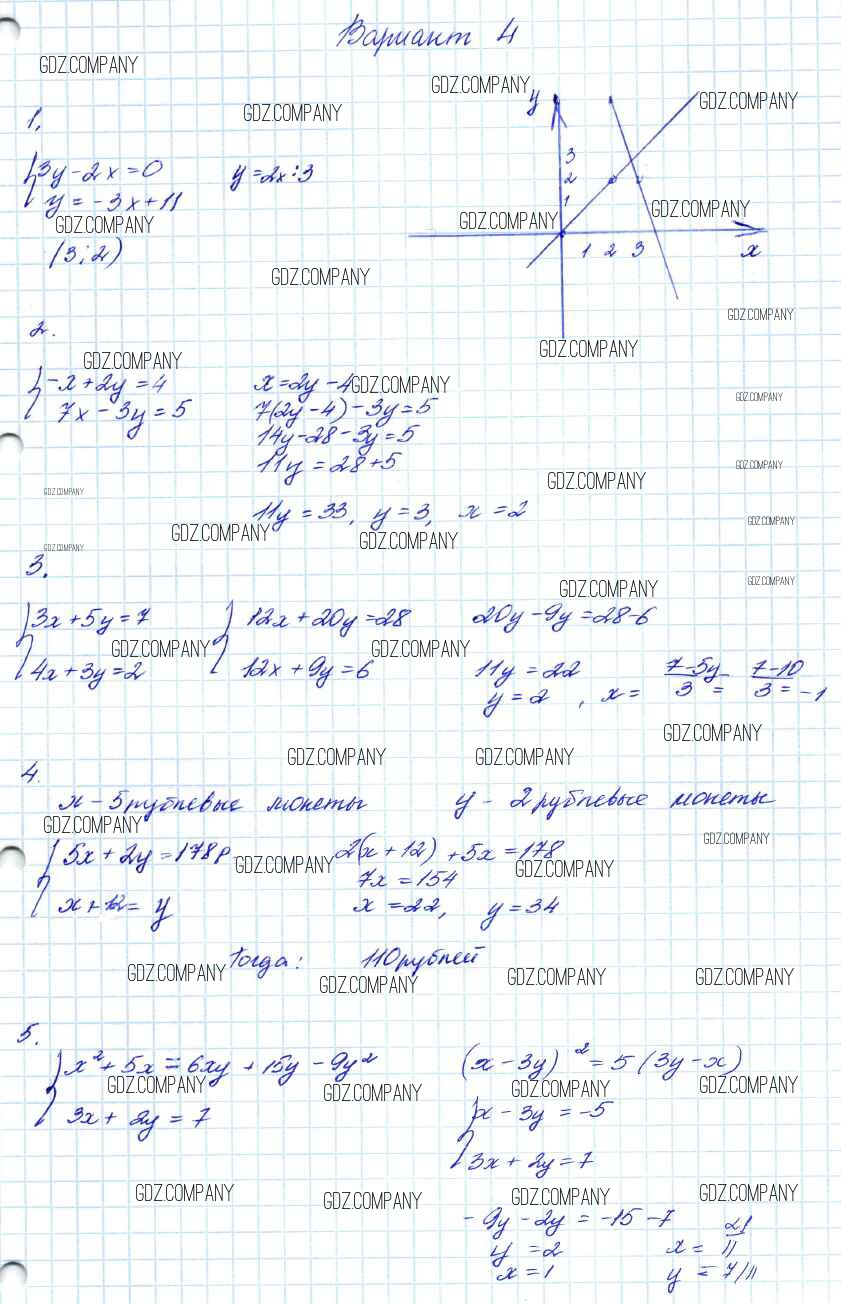 Вариант 4
GDZ.COMPANY
GDZ.COMPANY
GDZ.COMPANY GDZ.COMPANY
1.
y
3
2
1
1 2 3
x
3y - 2x = 0 y = 2x : 3
y = -3x + 11
GDZ.COMPANY GDZ.COMPANY GDZ.COMPANY
(3; 2)
GDZ.COMPANY
GDZ.COMPANY
2.
GDZ.COMPANY GDZ.COMPANY
-x + 2y = 4 x = 2y - 4 GDZ.COMPANY
7x - 3y = 5 7(2y - 4) - 3y = 5 GDZ.COMPANY
14y - 28 - 3y = 5
11y = 28 + 5 GDZ.COMPANY
GDZ.COMPANY GDZ.COMPANY
11y = 33, y = 3, x = 2 GDZ.COMPANY
GDZ.COMPANY GDZ.COMPANY
GDZ.COMPANY
3.
GDZ.COMPANY GDZ.COMPANY
3x + 5y = 7 12x + 20y = 28 20y - 9y = 28 - 6
GDZ.COMPANY GDZ.COMPANY
4x + 3y = 2 12x + 9y = 6 11y = 22
y = 2, x = 7-5y/3 = 7-10/3 = -1
GDZ.COMPANY
GDZ.COMPANY GDZ.COMPANY
4.
x - 5 рублевые монеты y - 2 рублевые монеты
GDZ.COMPANY GDZ.COMPANY
5x + 2y = 178р. 2(x + 12) + 5x = 178
GDZ.COMPANY GDZ.COMPANY
7x = 154
x + 12 = y x = 22, y = 34
Тогда: 110 рублей
GDZ.COMPANY GDZ.COMPANY GDZ.COMPANY GDZ.COMPANY
5.
x² + 5x = 6xy + 15y - 9y² (x - 3y)² = 5(3y - x)
GDZ.COMPANY GDZ.COMPANY GDZ.COMPANY GDZ.COMPANY
3x + 2y = 7 x - 3y = -5
3x + 2y = 7
GDZ.COMPANY GDZ.COMPANY GDZ.COMPANY GDZ.COMPANY
-9y - 2y = -15 - 7
y = 2 x = 21/11
x = 1 y = 7/11